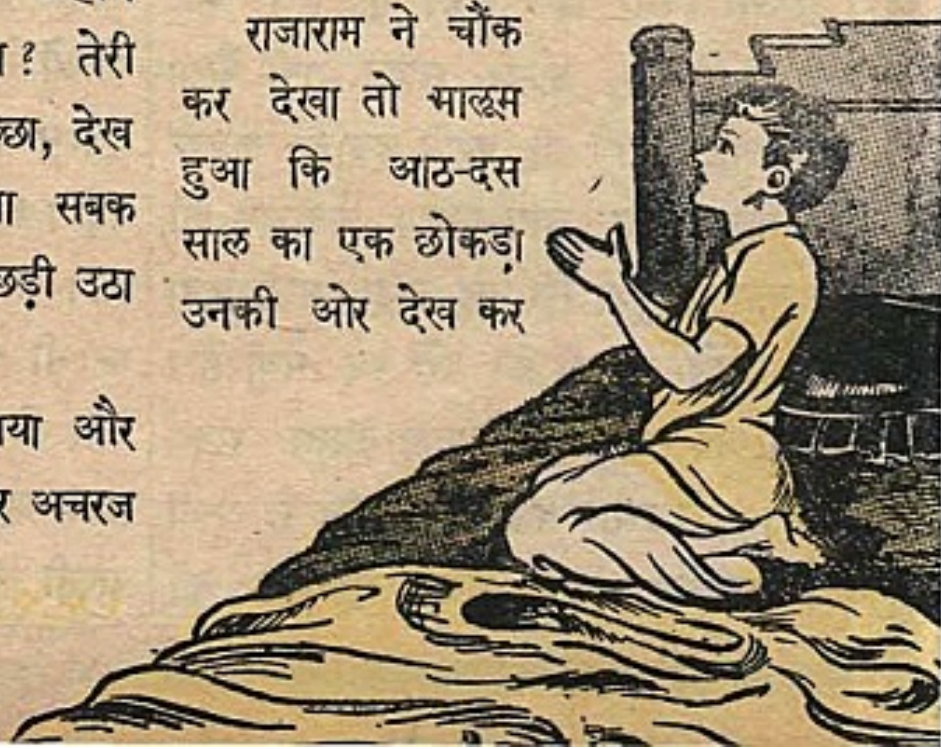 ? तेरी
देख
सबक
छड़ी उठा
और
अचरज
राजाराम ने चौंक
कर देखा तो मालूम
हुआ कि आठ-दस
साल का एक छोकड़ा
उनकी ओर देख कर